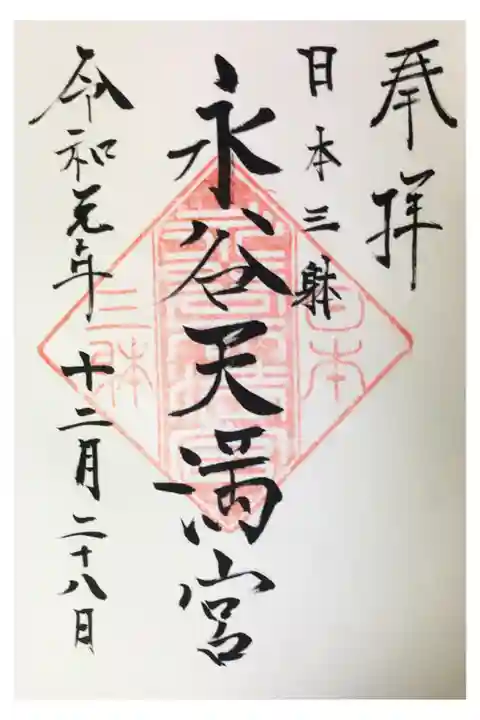 奉拝
日本三躰
永谷天満宮
令和元年 十二月二十八日
日本
三躰